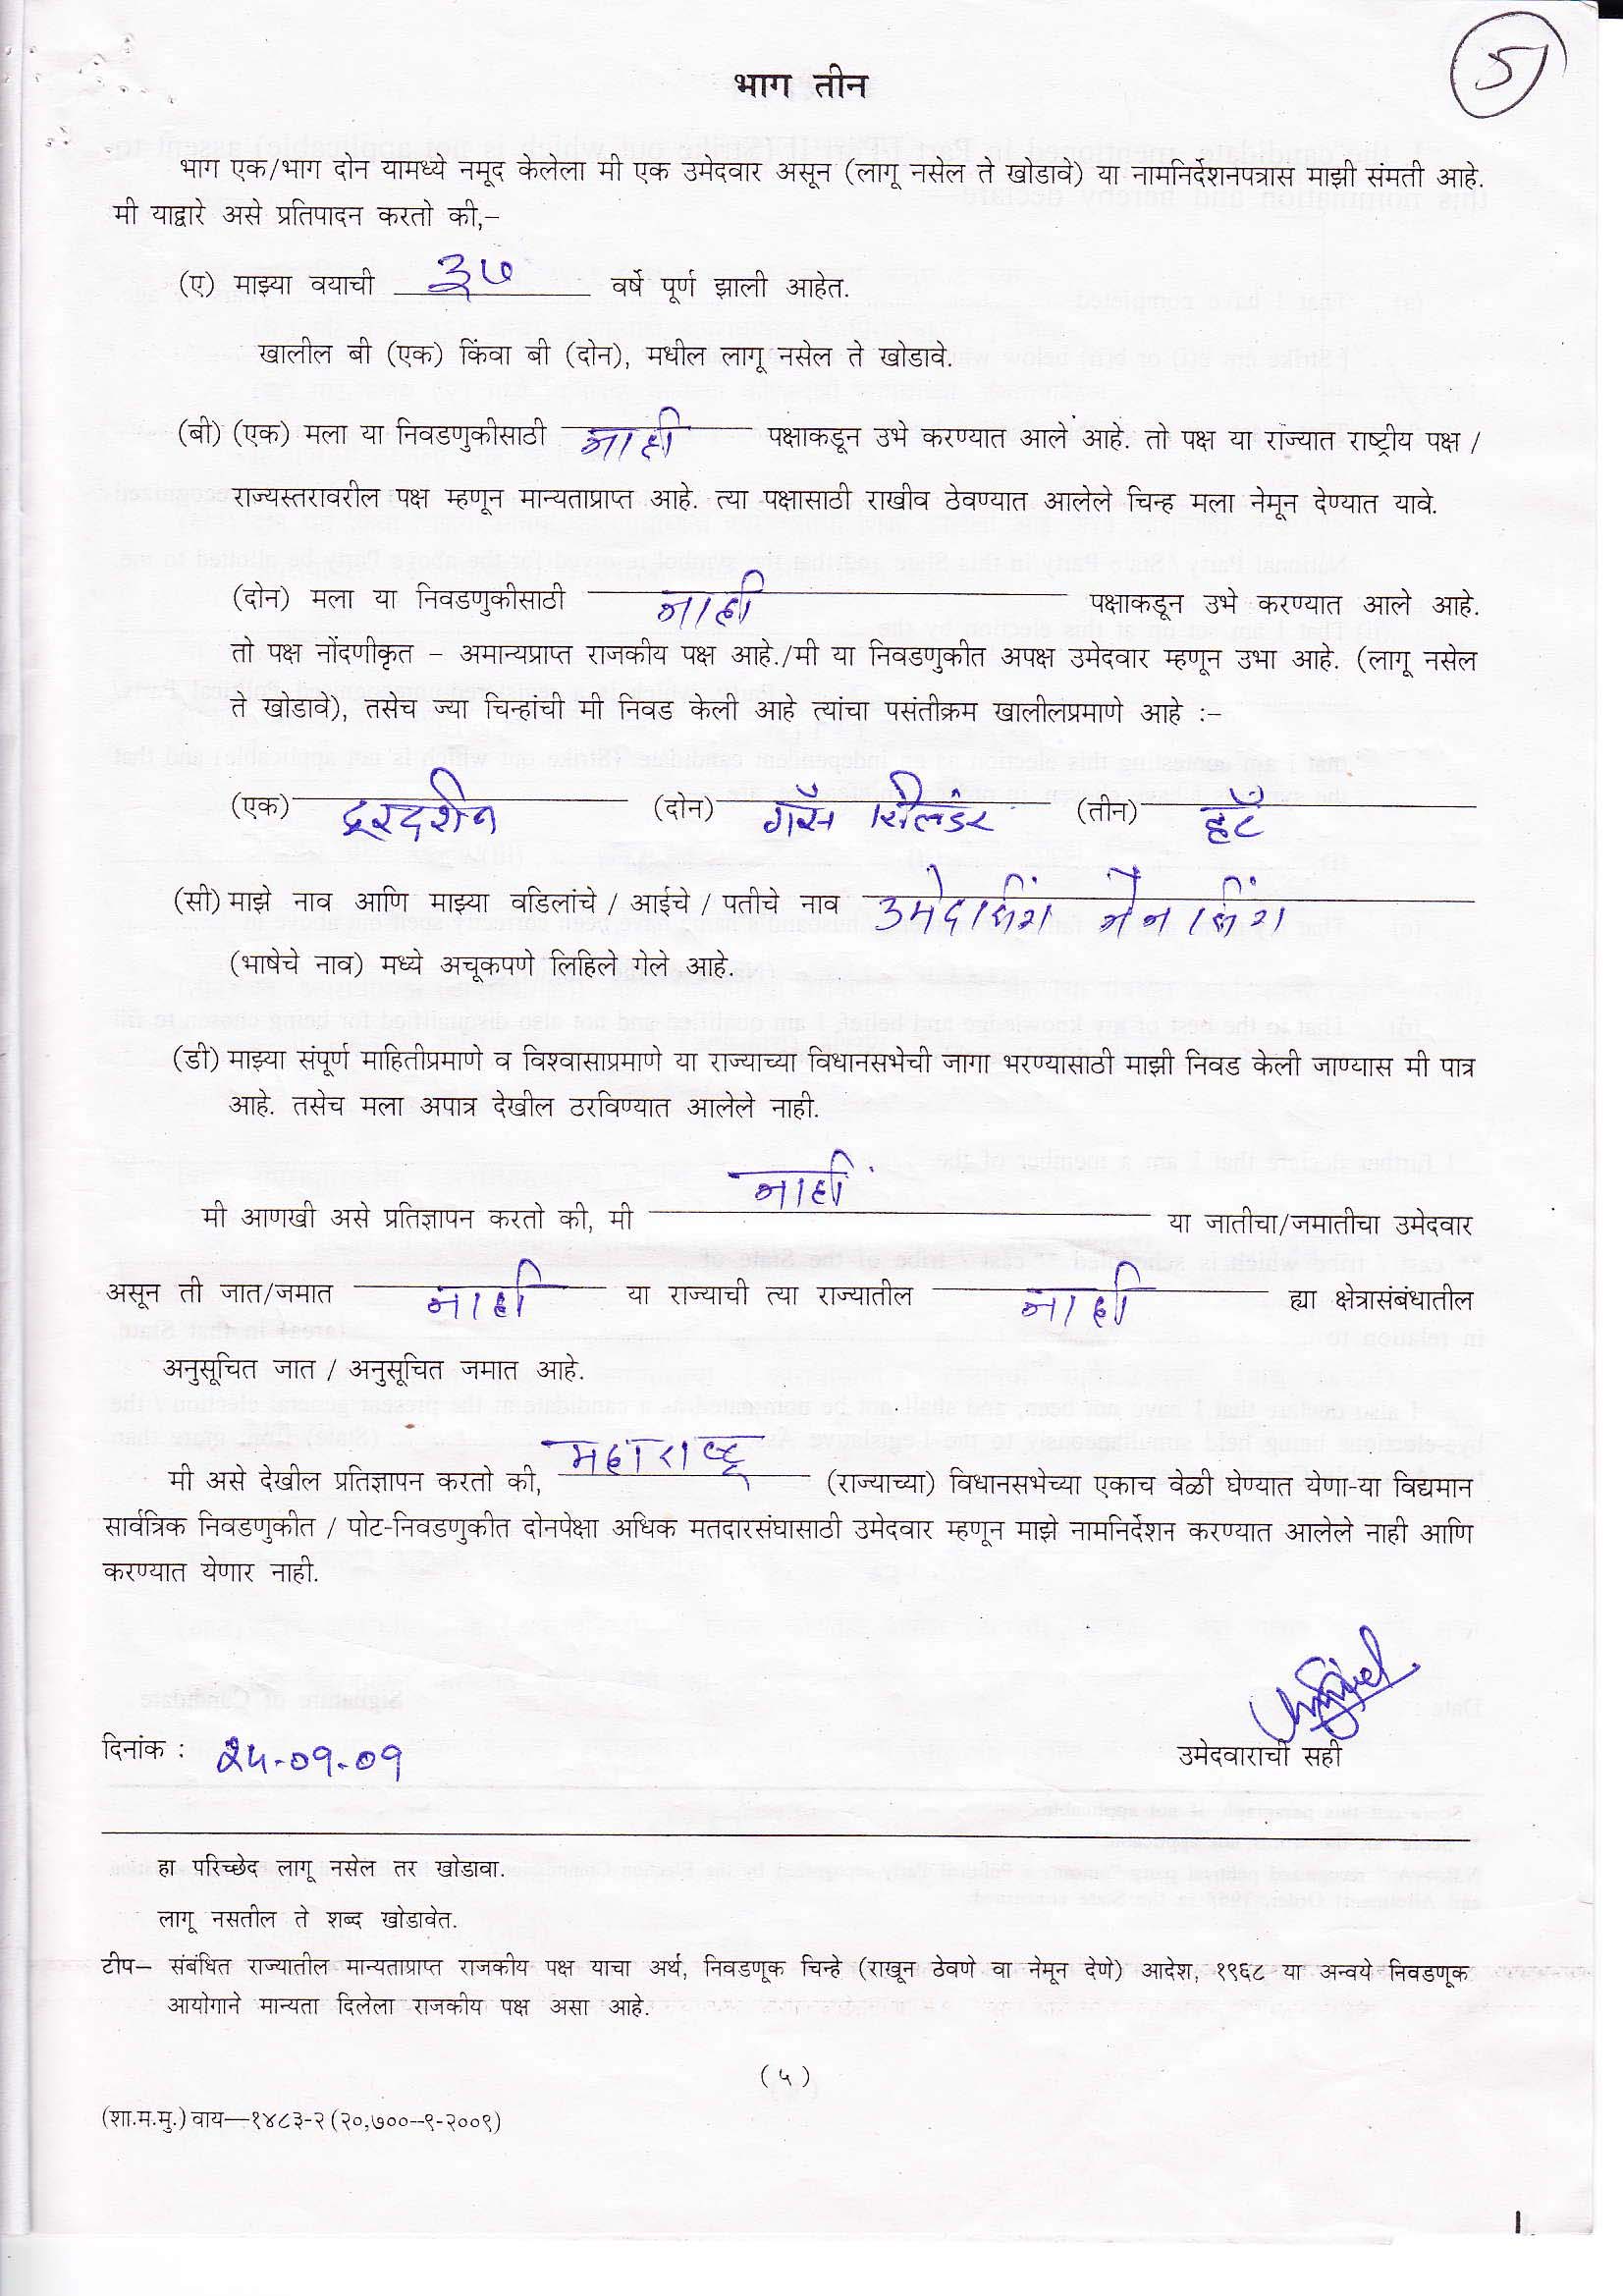 5
भाग तीन
भाग एक/भाग दोन यामध्ये नमूद केलेला मी एक उमेदवार असून (लागू नसेल ते खोडावे) या नामनिर्देशनपत्रास माझी संमती आहे.
मी याद्वारे असे प्रतिपादन करतो की,–
(ए) माझ्या वयाची ३७ वर्षे पूर्ण झाली आहेत.
खालील बी (एक) किंवा बी (दोन), मधील लागू नसेल ते खोडावे.
(बी) (एक) मला या निवडणुकीसाठी नाही पक्षाकडून उभे करण्यात आले आहे. तो पक्ष या राज्यात राष्ट्रीय पक्ष /
राज्यस्तरावरील पक्ष म्हणून मान्यताप्राप्त आहे. त्या पक्षासाठी राखीव ठेवण्यात आलेले चिन्ह मला नेमून देण्यात यावे.
(दोन) मला या निवडणुकीसाठी नाही पक्षाकडून उभे करण्यात आले आहे.
तो पक्ष नोंदणीकृत – अमान्यप्राप्त राजकीय पक्ष आहे./मी या निवडणुकीत अपक्ष उमेदवार म्हणून उभा आहे. (लागू नसेल
ते खोडावे), तसेच ज्या चिन्हांची मी निवड केली आहे त्यांचा पसंतीक्रम खालीलप्रमाणे आहे :–
(एक) दूरदर्शन (दोन) गॅस सिलेंडर (तीन) हॅट
(सी) माझे नाव आणि माझ्या वडिलांचे / आईचे / पतीचे नाव उमेदसिंग नैनसिंग
(भाषेचे नाव) मध्ये अचूकपणे लिहिले गेले आहे.
(डी) माझ्या संपूर्ण माहितीप्रमाणे व विश्वासाप्रमाणे या राज्याच्या विधानसभेची जागा भरण्यासाठी माझी निवड केली जाण्यास मी पात्र
आहे. तसेच मला अपात्र देखील ठरविण्यात आलेले नाही.
मी आणखी असे प्रतिज्ञापन करतो की, मी नाही या जातीचा/जमातीचा उमेदवार
असून ती जात/जमात नाही या राज्याची त्या राज्यातील नाही ह्या क्षेत्रासंबंधातील
अनुसूचित जात / अनुसूचित जमात आहे.
मी असे देखील प्रतिज्ञापन करतो की, महाराष्ट्र (राज्याच्या) विधानसभेच्या एकाच वेळी घेण्यात येणा-या विद्यमान
सार्वत्रिक निवडणुकीत / पोट-निवडणुकीत दोनपेक्षा अधिक मतदारसंघासाठी उमेदवार म्हणून माझे नामनिर्देशन करण्यात आलेले नाही आणि
करण्यात येणार नाही.
दिनांक : २५-०९-०९ उमेदवाराची सही
हा परिच्छेद लागू नसेल तर खोडावा.
लागू नसतील ते शब्द खोडावेत.
टीप— संबंधित राज्यातील मान्यताप्राप्त राजकीय पक्ष याचा अर्थ, निवडणूक चिन्हे (राखून ठेवणे वा नेमून देणे) आदेश, १९६८ या अन्वये निवडणूक
आयोगाने मान्यता दिलेला राजकीय पक्ष असा आहे.
(५)
(शा.म.मु.) वाय—१४८३-२ (२०,७००--९-२००९)